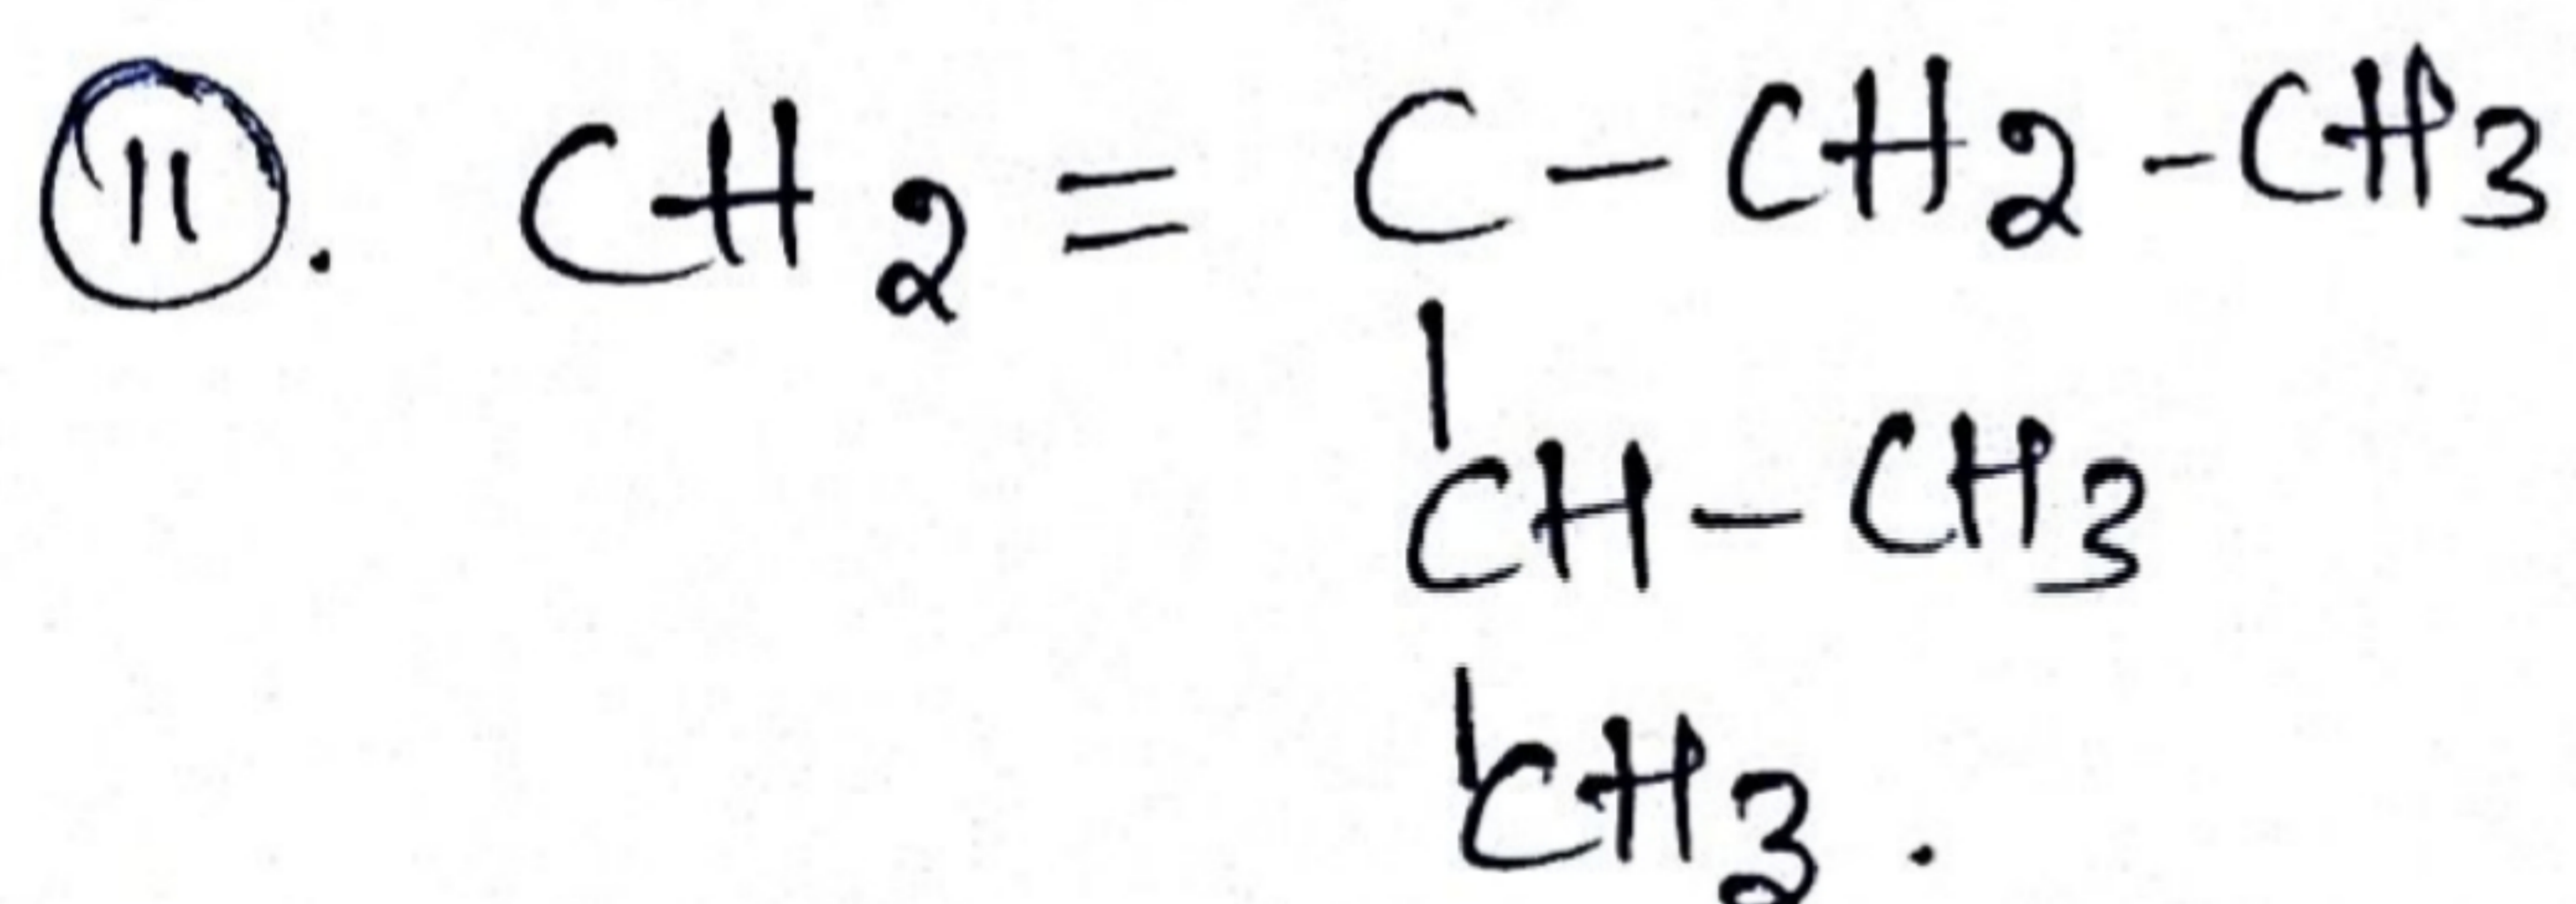 11. CH2 = C - CH2 - CH3
CH - CH3
CH3.